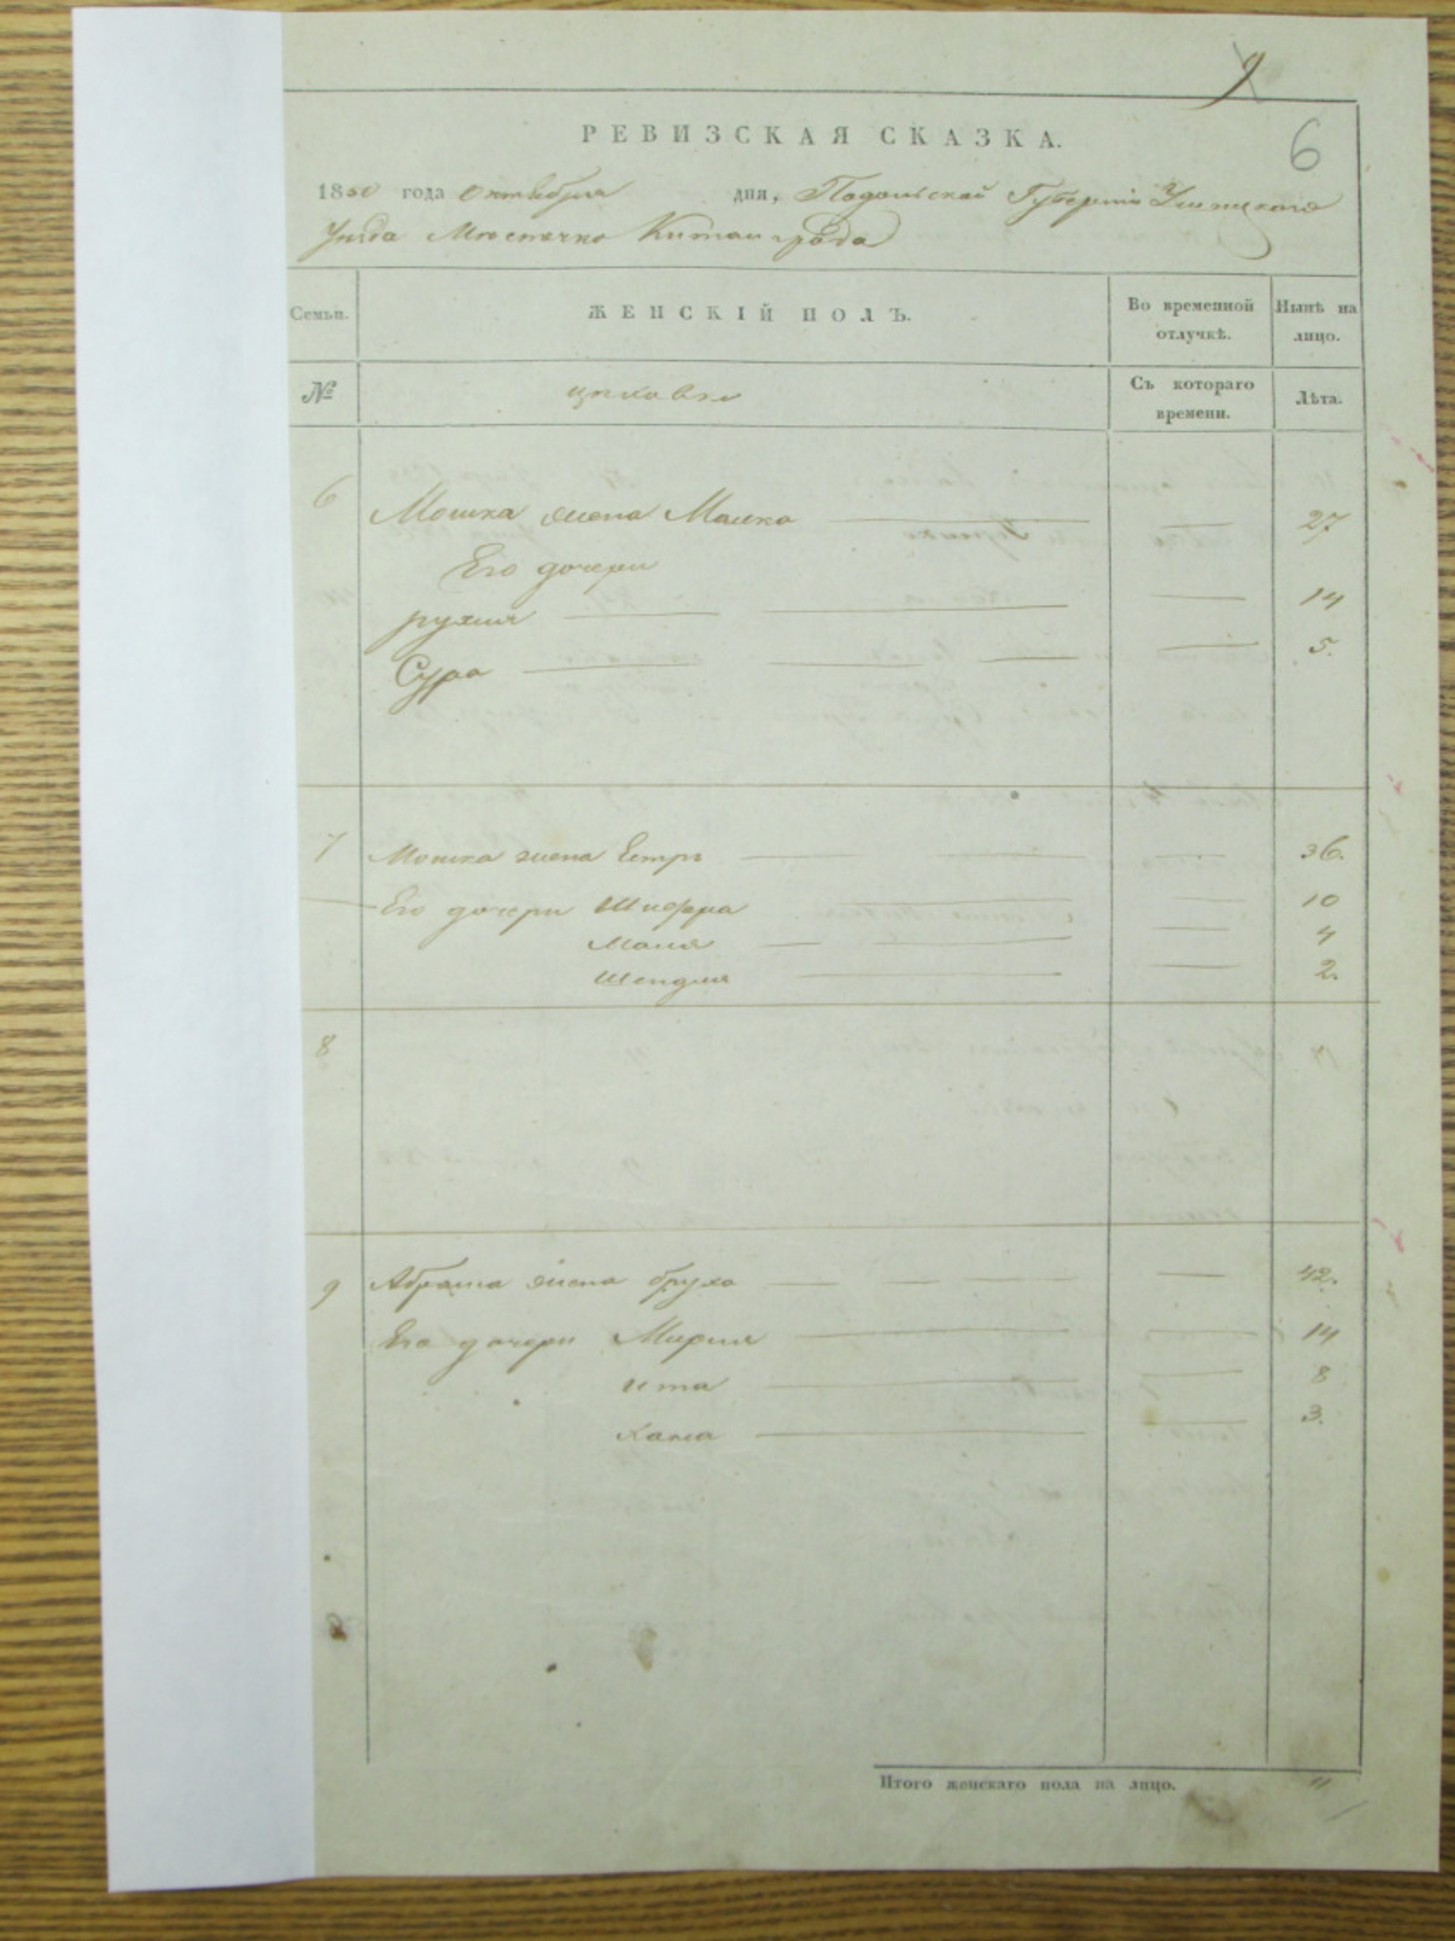 9
6
РЕВИЗСКАЯ СКАЗКА.
1850 года Октября дня, Подольской Губерніи Ушицкаго
Уѣзда Мѣстечко Китайгрода
Семьи. ЖЕНСКІЙ ПОЛЪ. Во временной отлучкѣ. Нынѣ на лицо.
№ Съ котораго времени. Лѣта.
6 Мошка жена Малка — — 27
Его дочери
рухля — — 14
Сура — — 5.
7 Мошка жена Естръ — — 36.
Его дочери Шифра — — 10
Маля — — 4
Шендля — — 2.
8
9 Абрама жена бруха — — 42.
Его дочери Мирля — — 14
ита — — 8
Хана — — 3.
Итого женскаго пола на лицо. 11